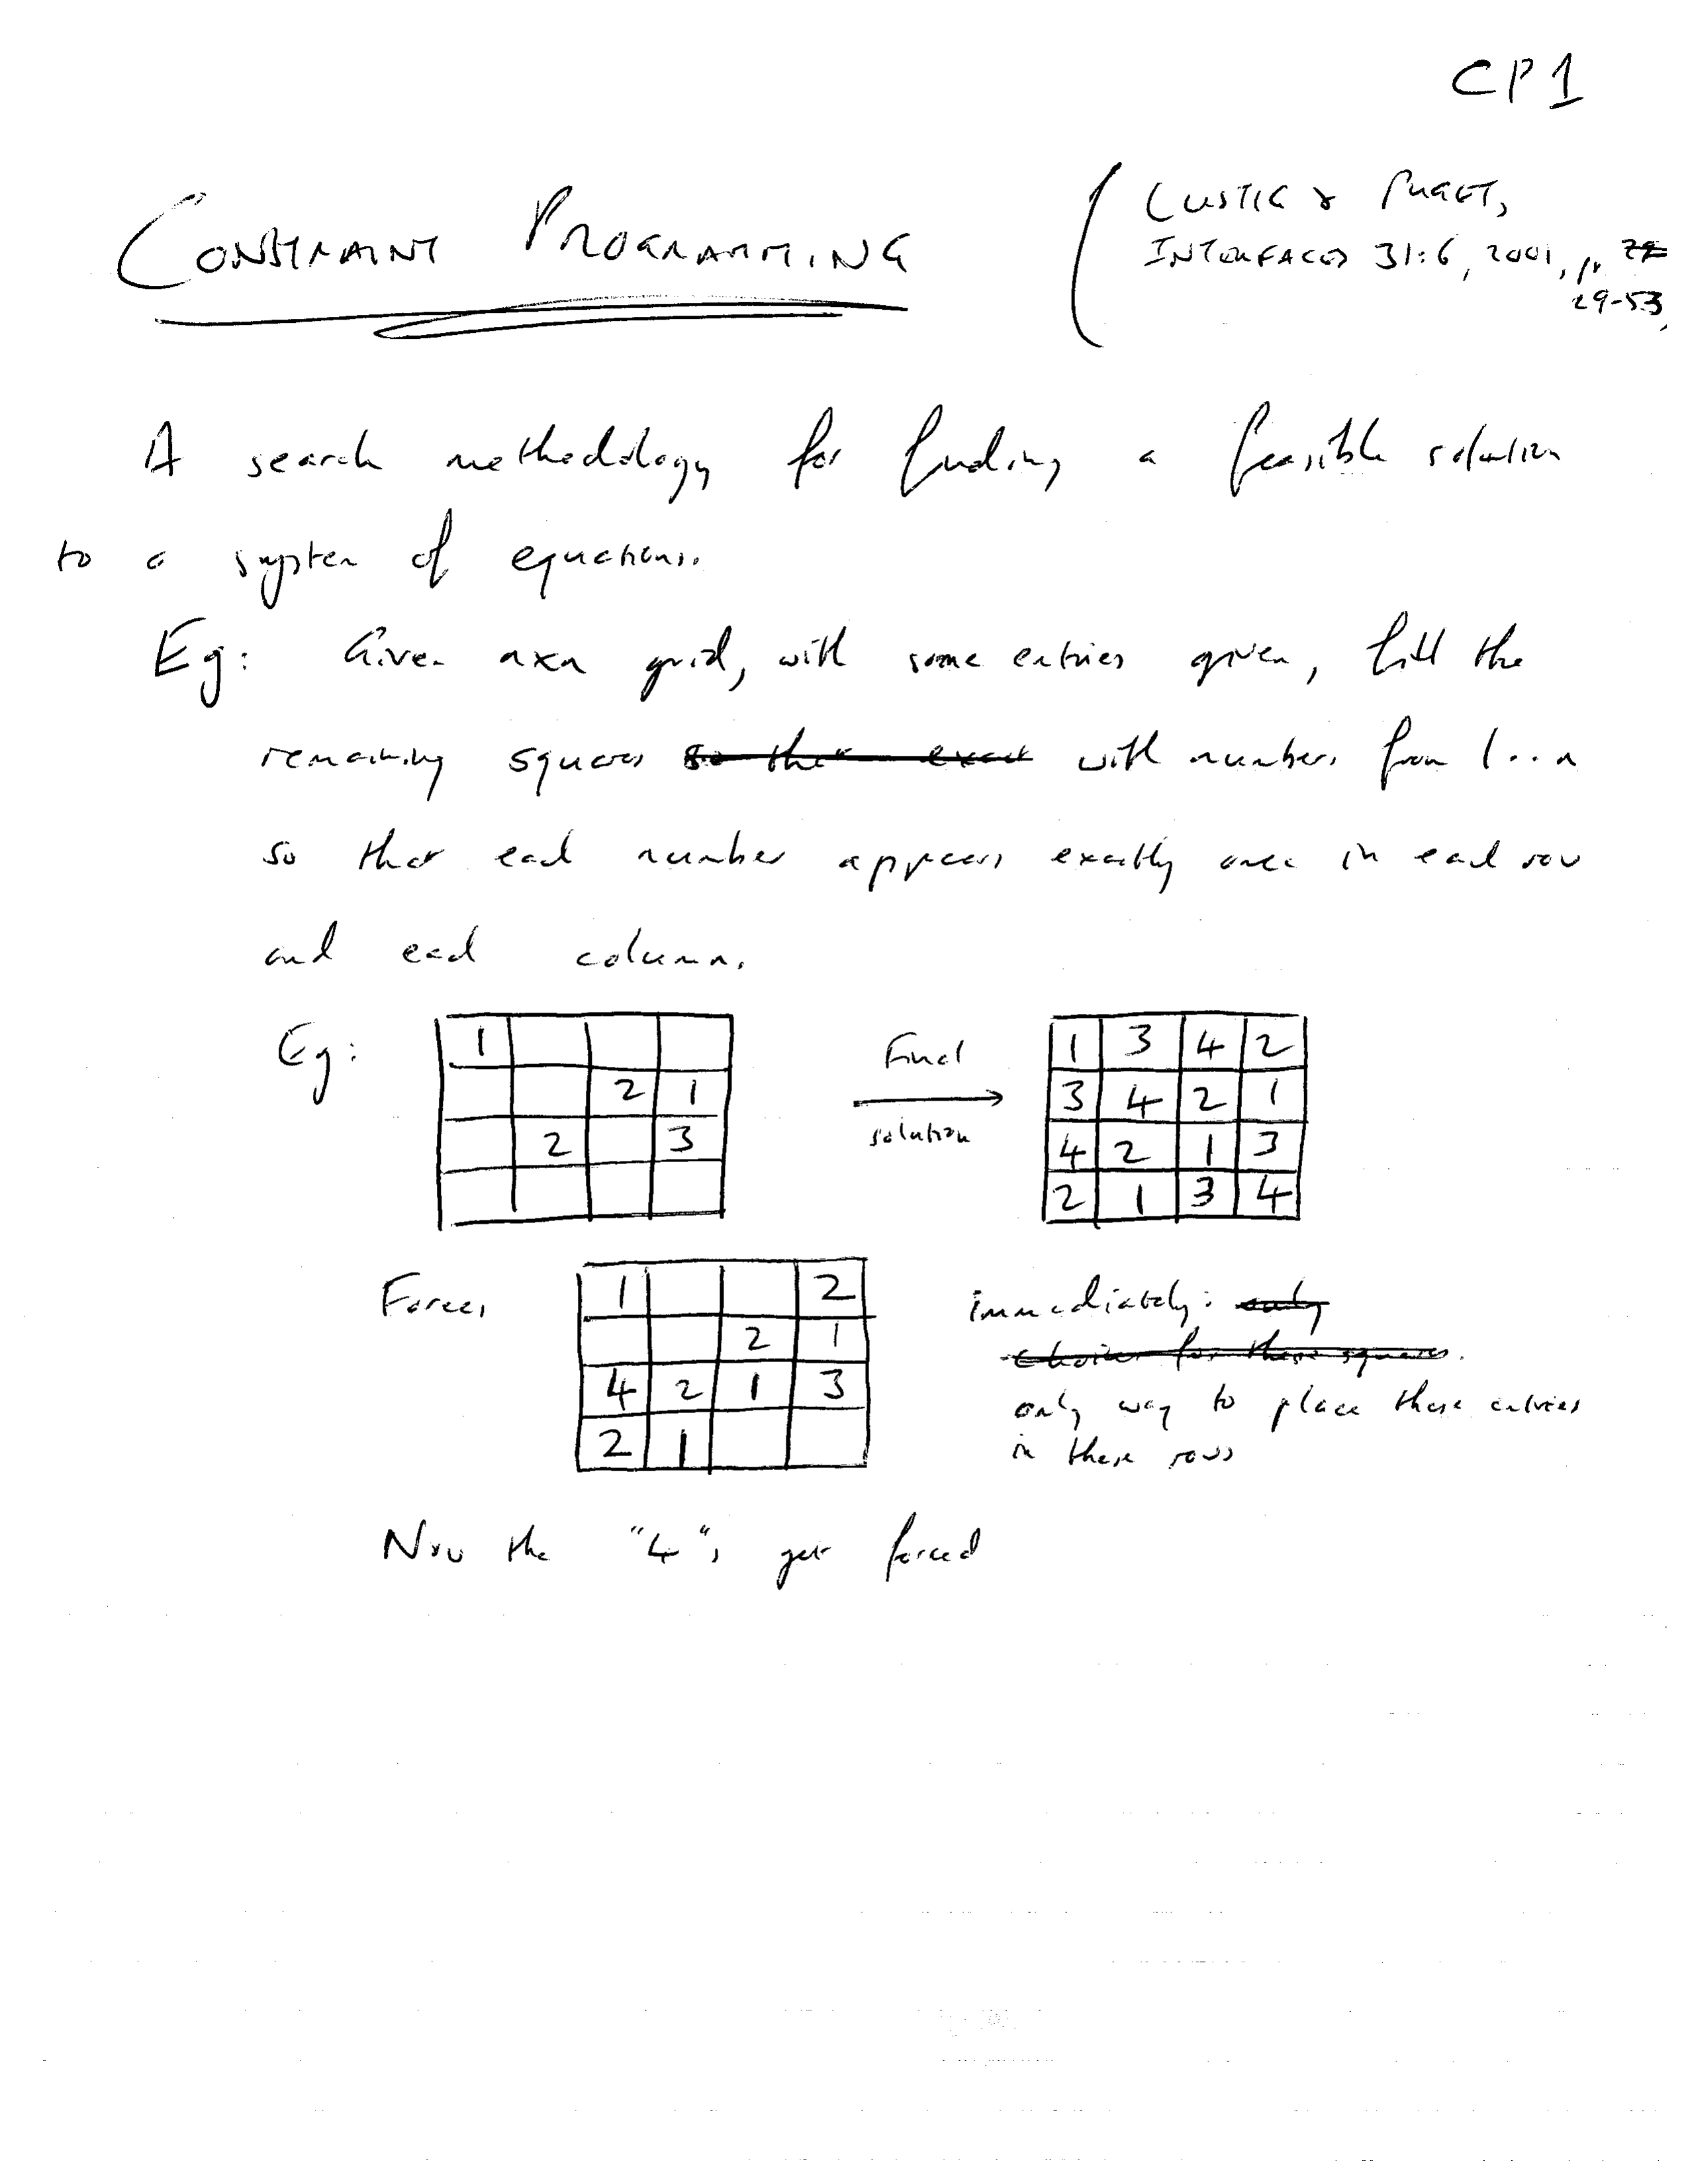 CP1
CONSTRAINT PROGRAMMING
(LUSTIG & PUGET,
INTERFACES 31:6, 2001, p.
29-53,
A search methodology for finding a feasible solution
to a system of equations.
Eg: Given nxn grid, with some entries given, fill the
remaining squares so that exact with numbers from 1...n
so that each number appears exactly once in each row
and each column.
Eg:
1
2 1
2 3
Final
solution
1 3 4 2
3 4 2 1
4 2 1 3
2 1 3 4
Forces
1 2
2 1
4 2 1 3
2 1
immediately: only
choices for these squares.
only way to place these entries
in these rows
Now the "4"s get forced